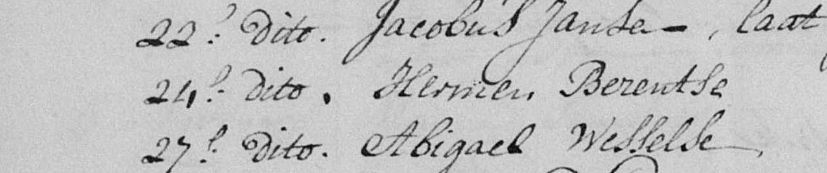 22.ᵉ Dito. Jacobus Janse - , laat
24.ᵉ dito. Hermen Berentse
27.ᵉ Dito. Abigael Wesselse